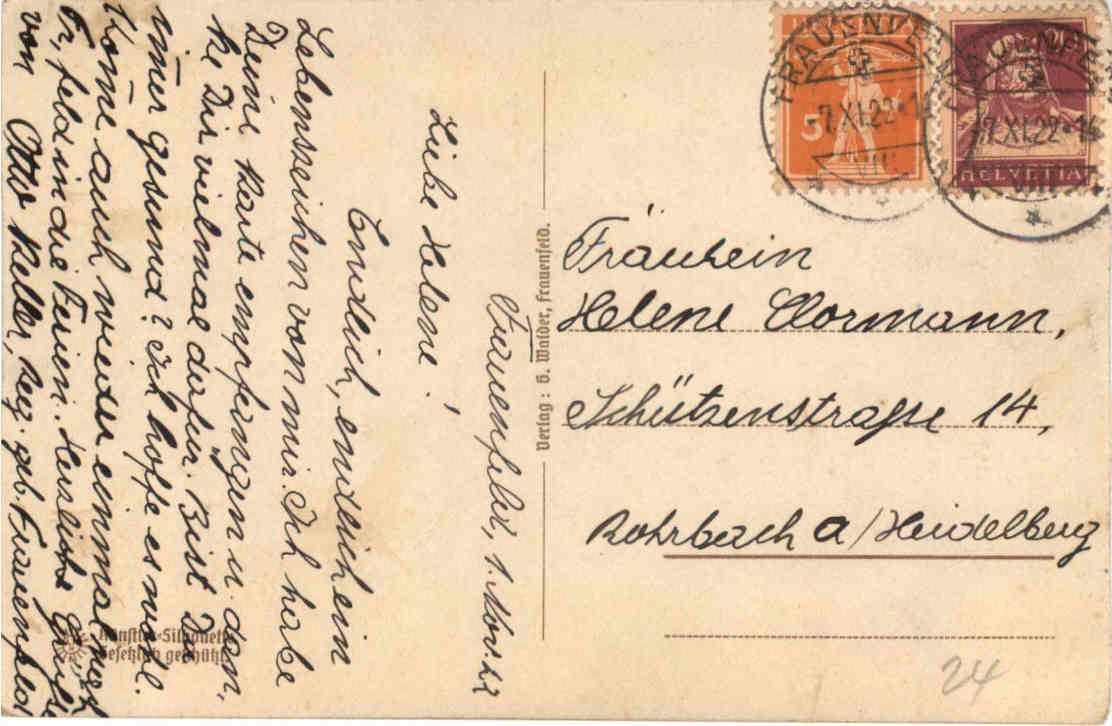 Frauenfeld, 1. Nov. 22
Liebe Helene!
Endlich, endlich ein
Lebenszeichen von mir. Ich habe
Deine Karte empfangen u. dan-
ke Dir vielmal dafür. Bist Du
im̄er gesund? Ich hoffe es wohl.
Kom̄e auch wieder einmal nach
Fr,feld in die Ferien. Herzliche Grüße
von Otto Keller, Reg. geb. Frauenfeld
Verlag: G. Walder, Frauenfeld.
Künstler-Silhouette
Gesetzlich geschützt
FRAUENFELD
-7.XI.22·14
VIII
5
FRAUENFELD
-7.XI.22·14
VIII
20
HELVETIA
Fräulein
Helene Clormann,
Schützenstraße 14,
Rohrbach a/Heidelberg
24